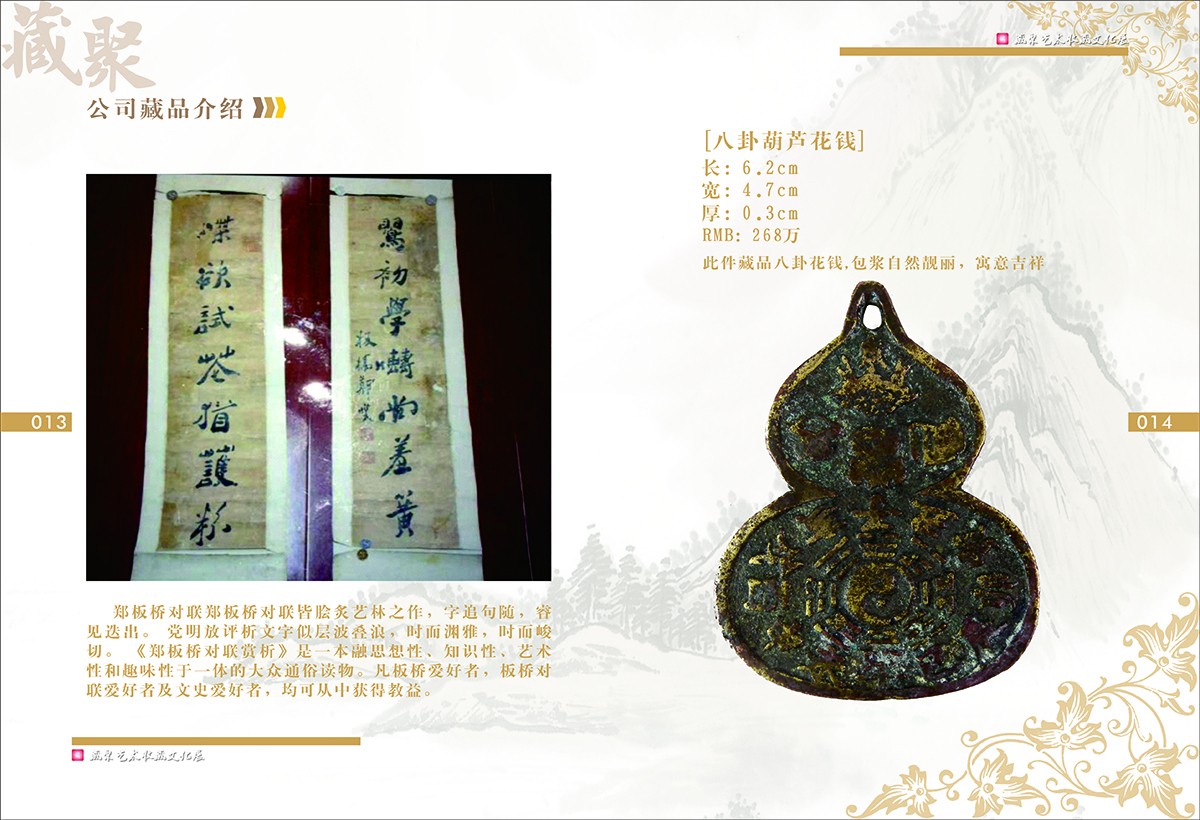 藏聚
公司藏品介绍
鶯初學囀尚羞簧
板橋鄭燮
蝶欲試花猶護粉
013
郑板桥对联郑板桥对联皆脍炙艺林之作，字追句随，睿
见迭出。 党明放评析文字似层波叠浪，时而渊雅，时而峻
切。 《郑板桥对联赏析》是一本融思想性、知识性、艺术
性和趣味性于一体的大众通俗读物。凡板桥爱好者，板桥对
联爱好者及文史爱好者，均可从中获得教益。
[八卦葫芦花钱]
长: 6.2cm
宽: 4.7cm
厚: 0.3cm
RMB: 268万
此件藏品八卦花钱,包浆自然靓丽，寓意吉祥
014